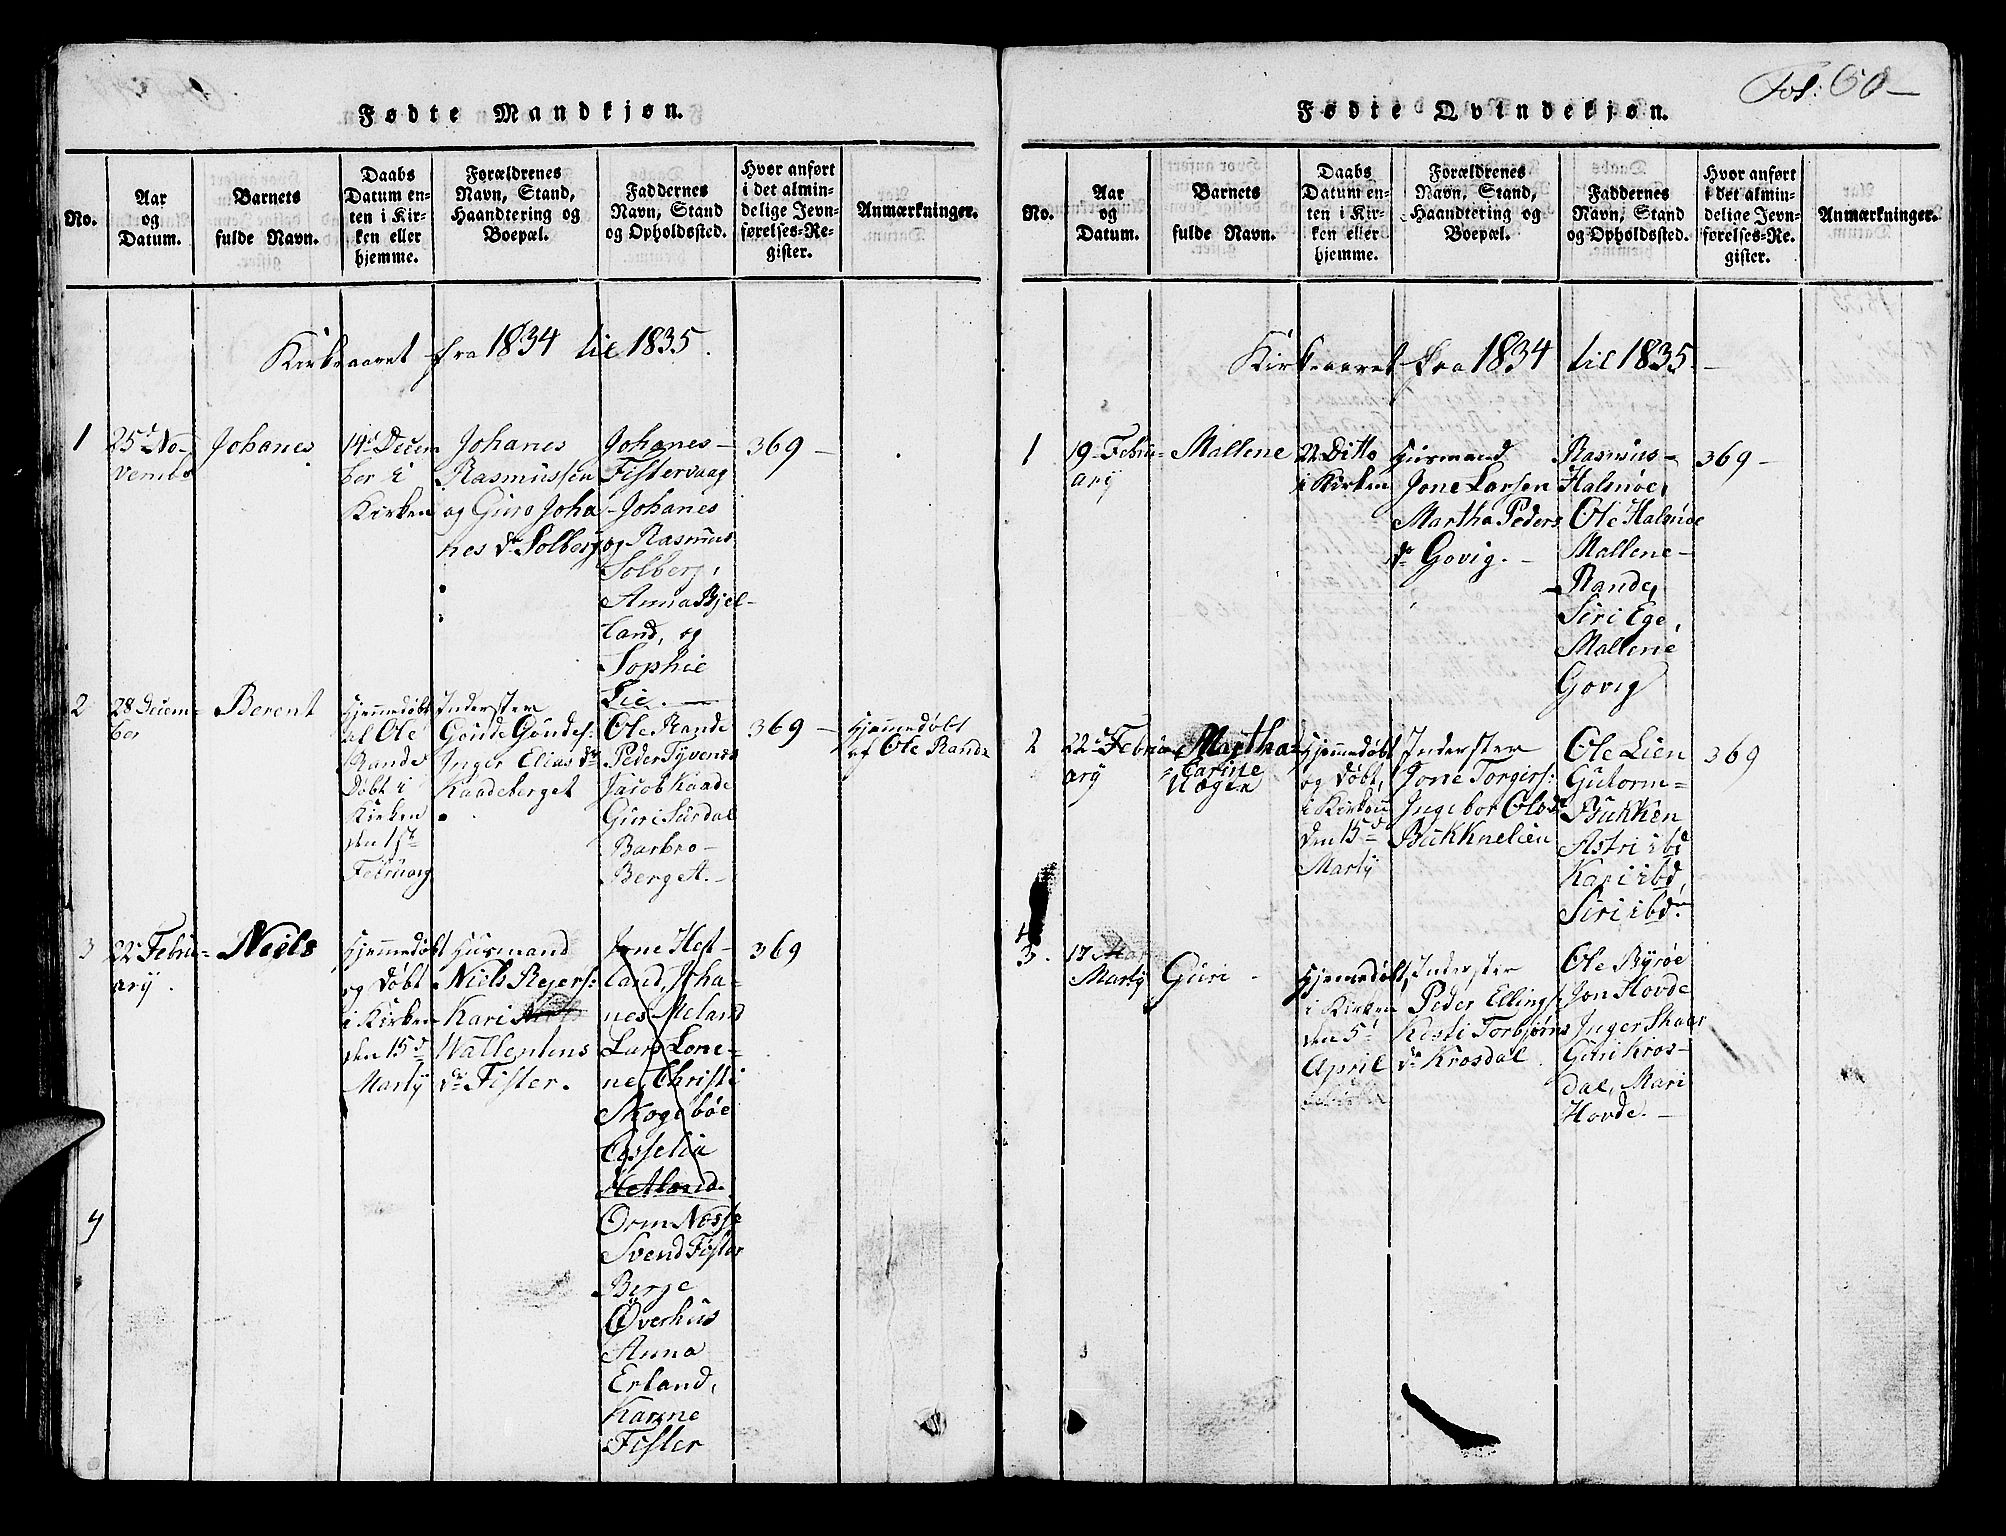 Fødte Mandkjøn.
No.
Aar
og
Datum.
Barnets
fulde Navn.
Daabs
Datum en-
ten i Kir-
ken eller
hjemme.
Forældrenes
Navn, Stand,
Haandtering og
Boepæl.
Faddernes
Navn, Stand
og Opholdssted.
Hvor anført
i det almin-
delige Jevn-
førelses-Re-
gister.
Anmærkninger.
Kirkeaaret fra 1834 til 1835.
1
25de No-
vembr
Johanes
14de Decem
ber i
Kirken
Johanes
Rasmussen
og Guro Joha
nes dr Solberg
Johanes-
Fistervaag
-Johanes
og Rasmus
Solberg,
Anna Bjel-
land, og
Sophie
Lie.
369-
2
28 Decem-
ber
Berent
Hjemmedøbt
af Ole
Rande
Døbt i
Kirken
den 1ste
Februarij
Inderster
Goude Goudes:
Inger Elias dr
Kaadeberget
Ole Rande
Peder Tyvenes
Jacob Kaade
Guri Surdal
Barbro-
Berget.-
369-
Hjemmedøbt
af Ole Rande
3
22 Febru-
arij.
Niels
Hjemmedøbt
og Døbt
i Kirken
den 15de
Martij
Husmand
Niels Rejers:
Kari
Wallentens
dr Fister.
Jone Het-
land, Joha-
nes Meland
Lars Lone-
ne, Christi
Skogebøe
Asselia
Hetland.
Orm Nesse
Svend Fister
Berge
Overhus
Anna
Erland,
Karine
Fister
369
4
Fol: 60-
Fødte Qvindekjøn.
No.
Aar
og
Datum.
Barnets
fulde Navn.
Daabs
Datum en-
ten i Kir-
ken eller
hjemme.
Forældrenes
Navn, Stand,
Haandtering og
Boepæl.
Faddernes
Navn, Stand
og Opholdssted.
Hvor anført
i det almin-
delige Jevn-
førelses-Re-
gister.
Anmærkninger.
Kirkeaaret fra 1834 til 1835.-
1
19-Febru-
arij
Mallene
22 Ditto
i Kirken
Husmand
Jone Larsen
Martha Peders
dr Govig.-
Rasmus-
Halsnøe,
Ole Halsnøe
Mallene-
Rande,
Siri Ege,
Mallene
Govig
369-
2
22-Febru-
arij
Martha
Carine
Hjemmedøbt
og Døbt,
i Kirken
den 15de
Martij
Inderster
Jone Torgirs:
Ingebor Olsdr
Bukknelien
Ole Lien
Gutorm-
Bukken
Astri ibd
Kari ibd,
Siri ibd.
369
3.
17
Martij
Guri-
Hjemmedøbt,
i Kirken
den 5te
April
Inderster
Peder Ellings:
Kisti Torbjørns
dr Krosdal.
Ole Byrøe
Jon Hovde
Inger Skaar
Guri Kros-
dal, Mari
Hovde.-